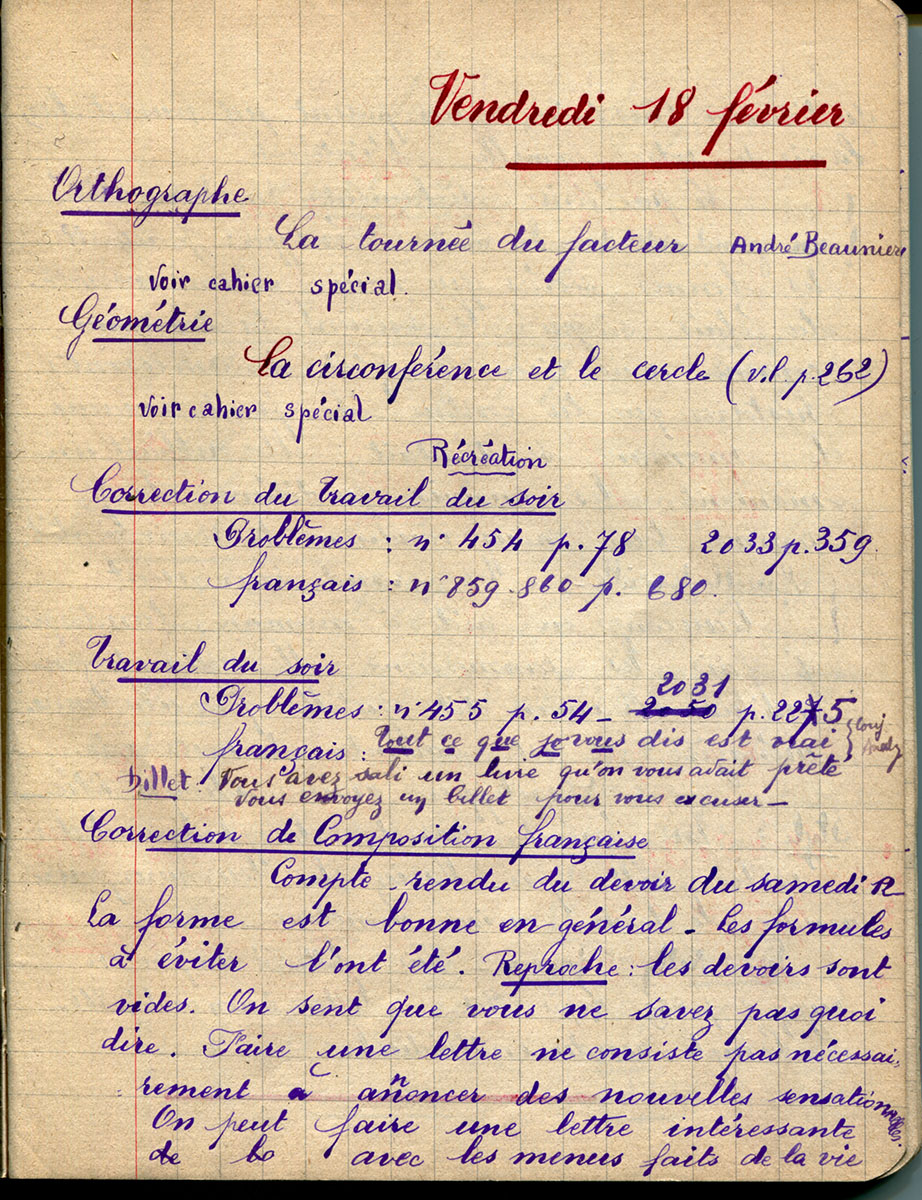 Vendredi 18 février
Orthographe
La tournée du facteur André Beaunier
voir cahier spécial.
Géométrie
La circonférence et le cercle (v.l. p.262)
voir cahier spécial
Récréation
Correction du travail du soir
Problèmes : n° 454 p. 78 2033 p. 359
français : n° 859-860 p. 680.
Travail du soir
2031
Problèmes : n° 455 p. 54 - p. 225
français : Tout ce que je vous dis est vrai
Billet. Vous avez sali un livre qu'on vous avait prêté
Vous envoyez un billet pour vous excuser -
Correction de Composition française
Compte-rendu du devoir du samedi 12
La forme est bonne en général - Les formules
à éviter l'ont été. Reproche : les devoirs sont
vides. On sent que vous ne savez pas quoi
dire. Faire une lettre ne consiste pas nécessai-
rement à annoncer des nouvelles sensationnelles.
On peut faire une lettre intéressante
avec les menus faits de la vie